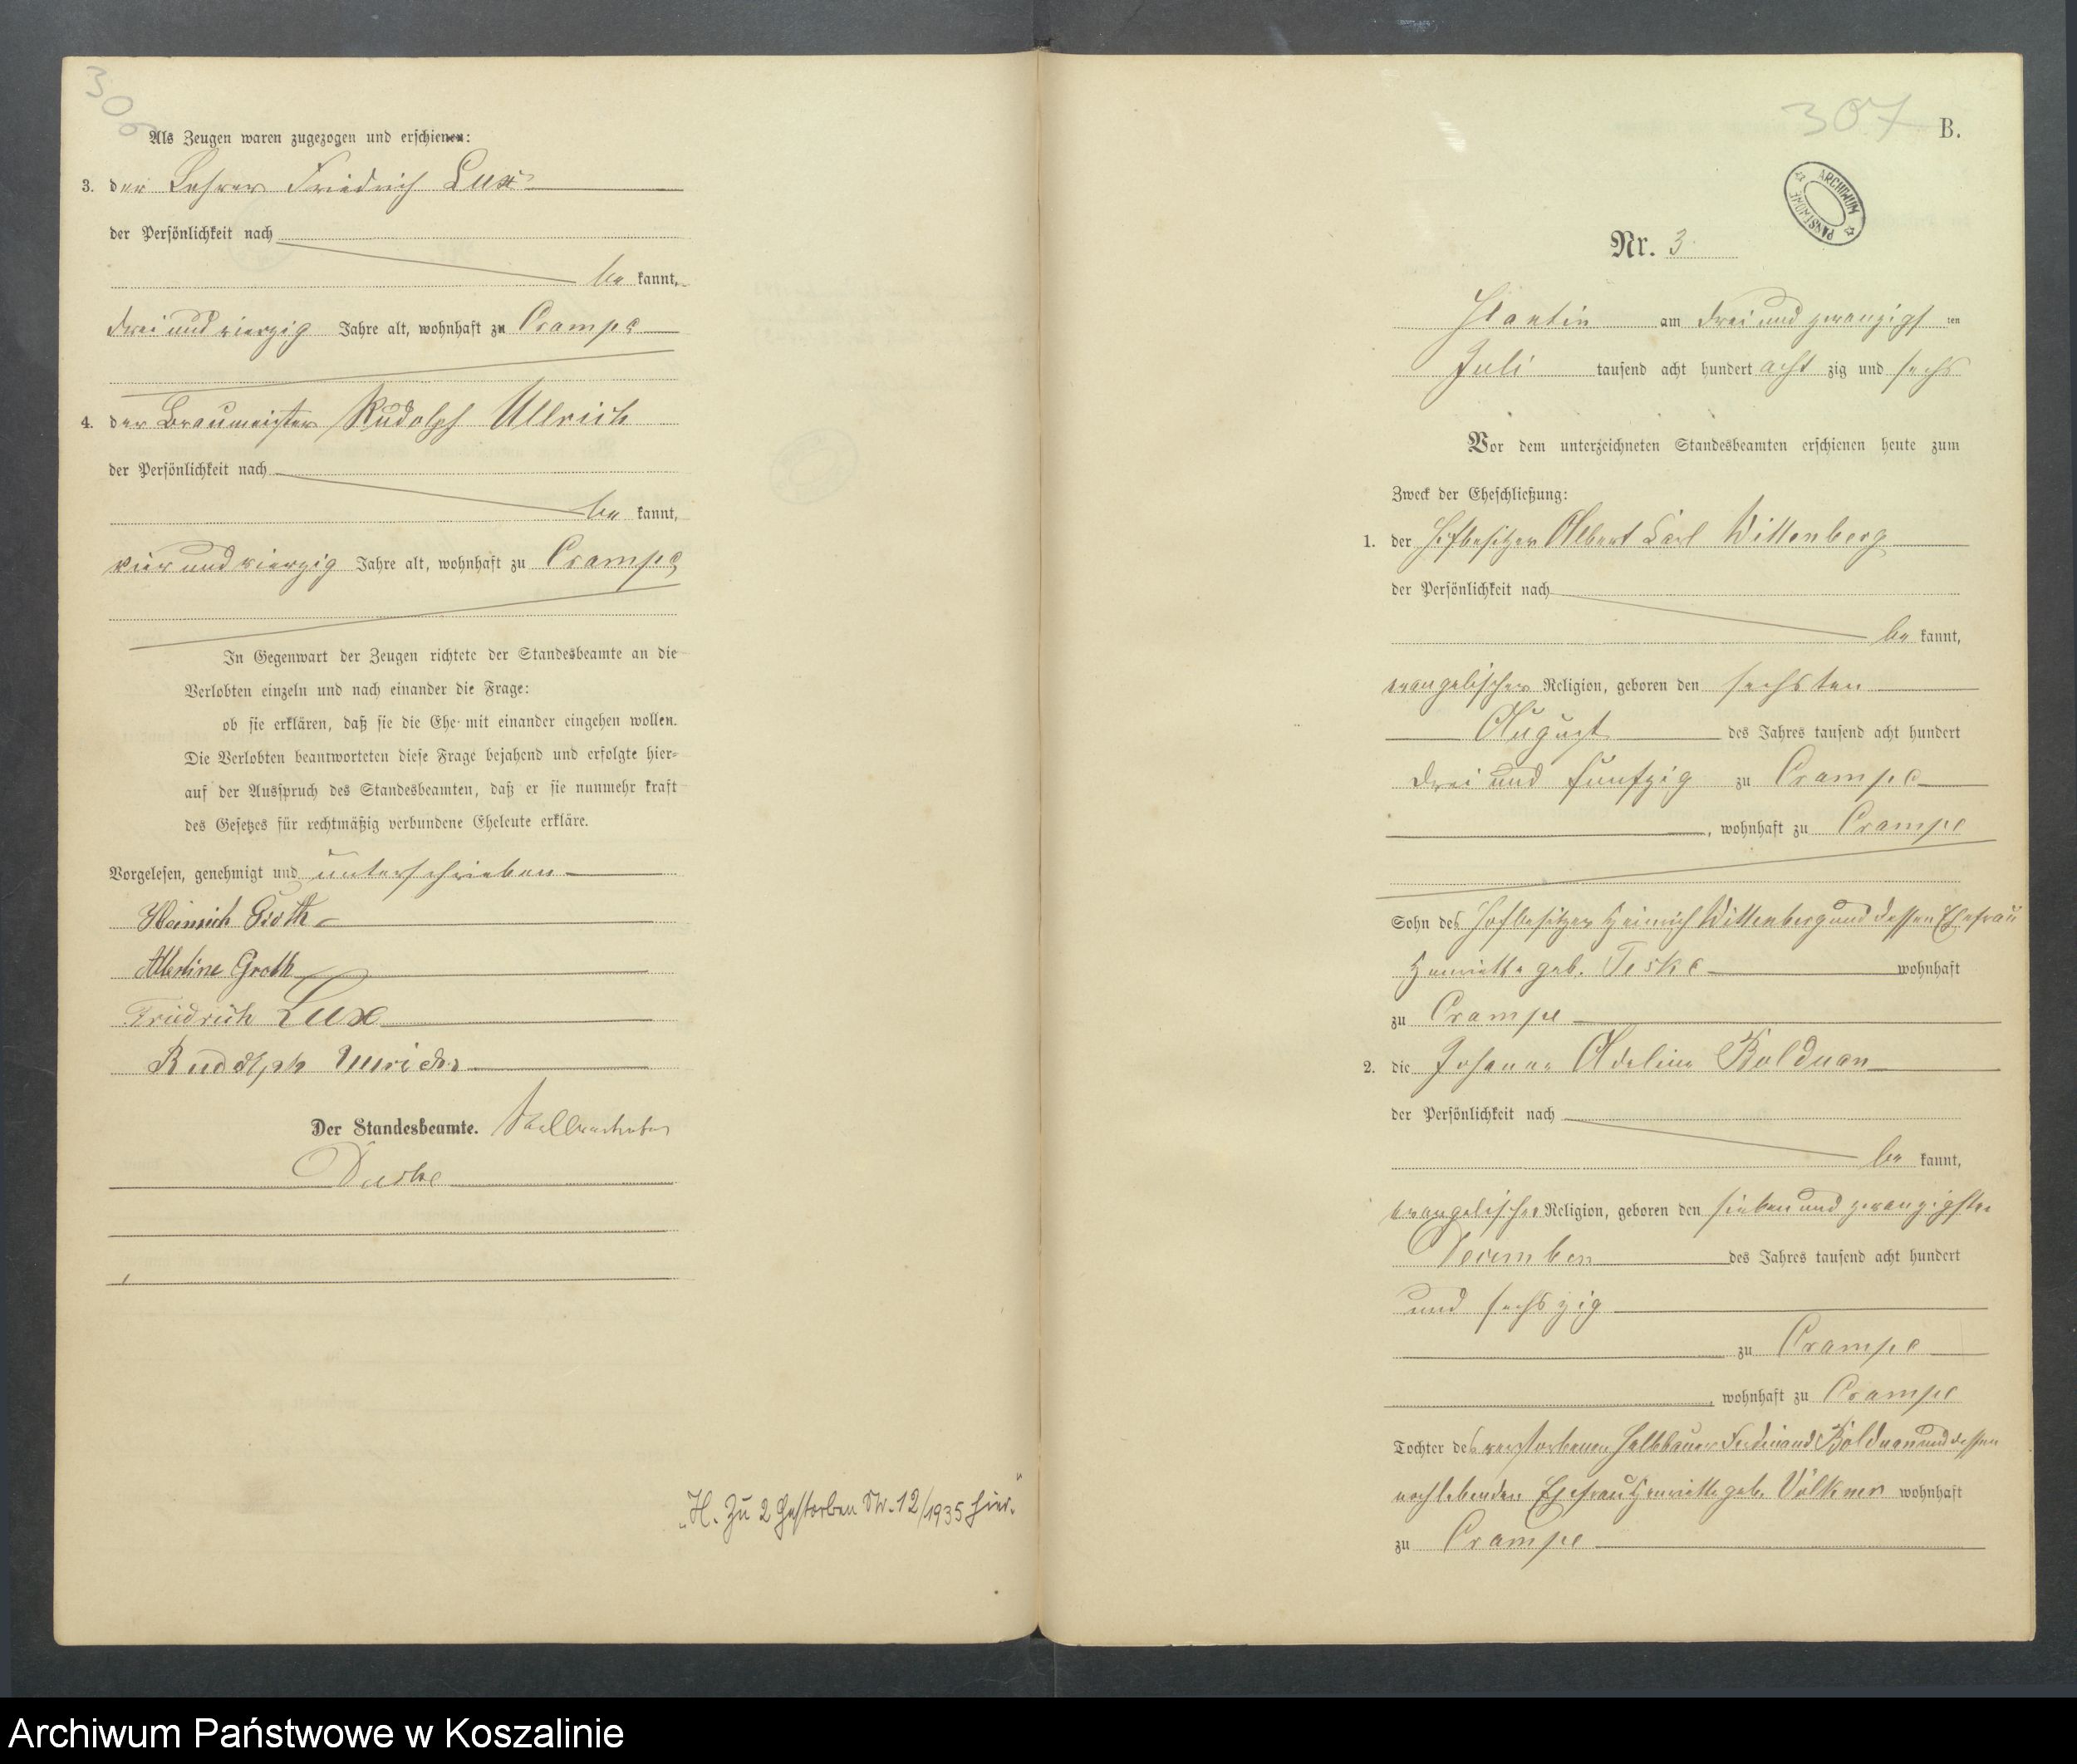 306
Als Zeugen waren zugezogen und erschienen:
3. der Lehrer Friedrich Lux
der Persönlichkeit nach
be kannt,
drei und vierzig Jahre alt, wohnhaft zu Crampe
4. der Braumeister Rudolph Ullrich
der Persönlichkeit nach
be kannt,
vier und vierzig Jahre alt, wohnhaft zu Crampe
In Gegenwart der Zeugen richtete der Standesbeamte an die
Verlobten einzeln und nach einander die Frage:
ob sie erklären, daß sie die Ehe mit einander eingehen wollen.
Die Verlobten beantworteten diese Frage bejahend und erfolgte hier-
auf der Ausspruch des Standesbeamten, daß er sie nunmehr kraft
des Gesetzes für rechtmäßig verbundene Eheleute erkläre.
Vorgelesen, genehmigt und unterschrieben
Heinrich Groth
Albertine Groth
Friedrich Lux
Rudolph Ullrich
Der Standesbeamte. Stellvertreter
"H. Zu 2 gestorben Nr. 12/1935 hier."
307
B.
ARCHIWUM PAŃSTWOWE
Nr. 3.
am drei und zwanzigs ten
Juli tausend acht hundert acht zig und sechs
Vor dem unterzeichneten Standesbeamten erschienen heute zum
Zweck der Eheschließung:
1. der Hofbesitzer Albert Carl Wittenberg
der Persönlichkeit nach
be kannt,
evangelischer Religion, geboren den sechsten
August des Jahres tausend acht hundert
drei und funfzig zu Crampe
, wohnhaft zu Crampe
Sohn des Hofbesitzer Heinrich Wittenberg und dessen Ehefrau
Henriette geb. Teske wohnhaft
zu Crampe
2. die Johanne Adeline Bolduan
der Persönlichkeit nach
be kannt,
evangelischer Religion, geboren den sieben und zwanzigsten
December des Jahres tausend acht hundert
und sechszig
zu Crampe
, wohnhaft zu Crampe
Tochter des verstorbenen Halbbauer Ferdinand Bolduan und dessen
nachlebenden Ehefrau Henriette geb. Völkner wohnhaft
zu Crampe
Archiwum Państwowe w Koszalinie